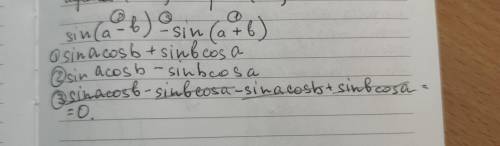 ② ③ ①
sin(a-b) -sin(a+b)
① sinacosb + sinbcosa
② sin acosb - sinbcosa
③ sinacosb - sinbcosa - sinacosb + sinbcosa =
=0.